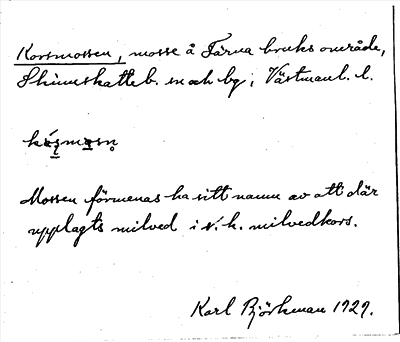 Korsmossen, mosse å Färna bruks område,
Skinnskatteb. sn och bg, Västmanl. l.
Mossen förmenas ha sitt namn av att där
upplagts milved i s. k. milvedkors.
Karl Björkman 1929.